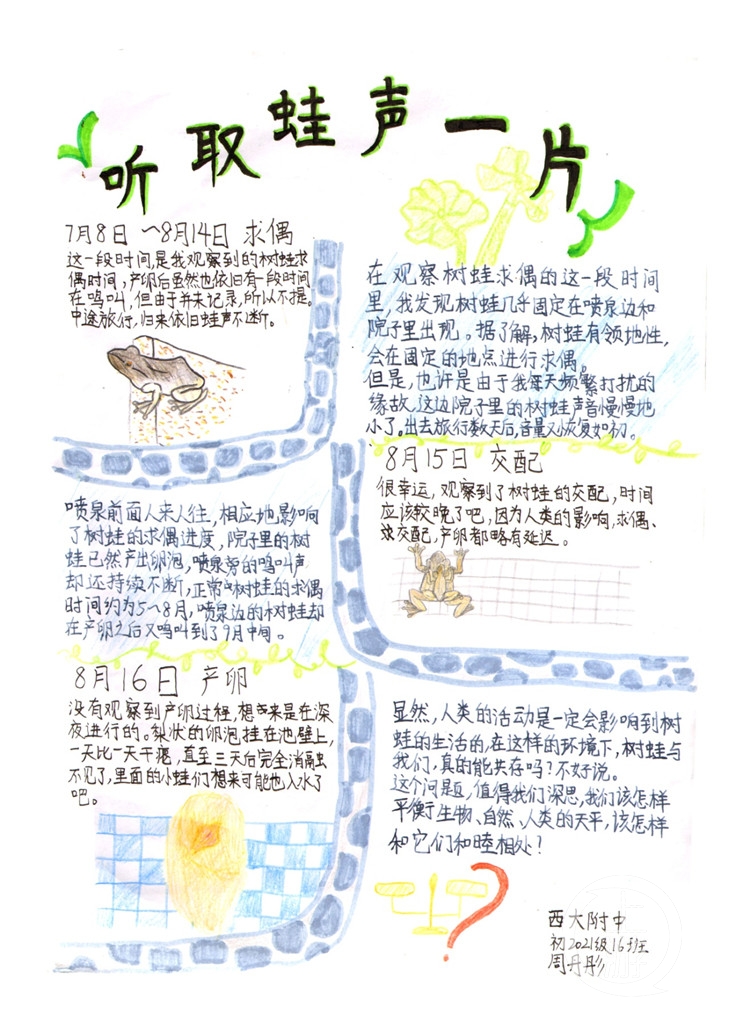 听取蛙声一片
7月8日～8月14日 求偶
这一段时间,是我观察到的树蛙求
偶时间,产卵后虽然也依旧有一段时间
在鸣叫,但由于并未记录,所以不提。
中途旅行,归来依旧蛙声不断。
在观察树蛙求偶的这一段时间
里,我发现树蛙几乎固定在喷泉边和
院子里出现。据了解,树蛙有领地性,
会在固定的地点进行求偶。
但是,也许是由于我每天频繁打扰的
缘故,这边院子里的树蛙声音慢慢地
小了。出去旅行数天后,音量又恢复如初。
喷泉前面人来人往,相应地影响
了树蛙的求偶进度,院子里的树
蛙已然产出卵泡,喷泉旁的鸣叫声
却还持续不断,正常树蛙的求偶
时间约为5～8月,喷泉边的树蛙却
在产卵之后又鸣叫到了9月中间。
8月15日 交配
很幸运,观察到了树蛙的交配,时间
应该较晚了吧,因为人类的影响,求偶、
交配,产卵都略有延迟。
8月16日 产卵
没有观察到产卵过程,想来是在深
夜进行的。梨状的卵泡挂在池壁上,
一天比一天干瘪,直至三天后完全消融
不见了,里面的小蛙们想来可能也入水了
吧。
显然,人类的活动是一定会影响到树
蛙的生活的,在这样的环境下,树蛙与
我们,真的能共存吗?不好说。
这个问题,值得我们深思,我们该怎样
平衡生物、自然、人类的天平,该怎样
和它们和睦相处?
西大附中
初2021级16班
周丹彤